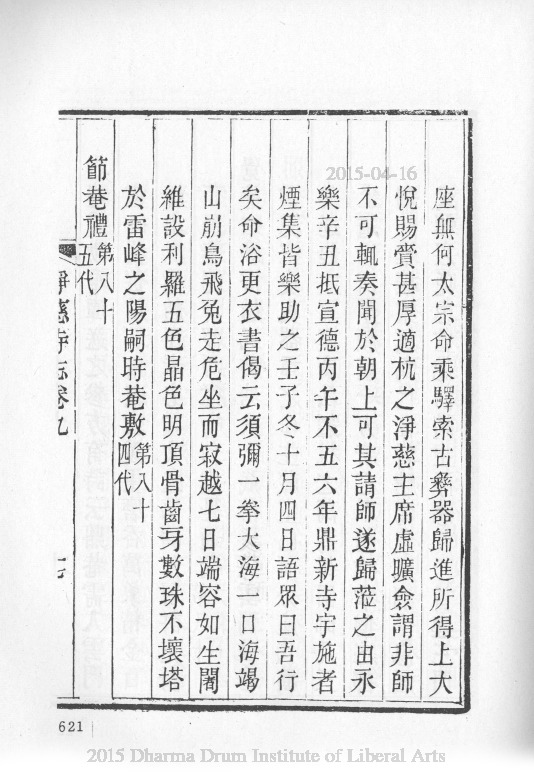 2015-04-16
座無何太宗命乘驛索古彝器歸進所得上大
悅賜賚甚厚適杭之淨慈主席虛曠僉謂非師
不可輒奏聞於朝上可其請師遂歸蒞之由永
樂辛丑抵宣德丙午不五六年鼎新寺宇施者
煙集皆樂助之壬子冬十月四日語眾曰吾行
矣命浴更衣書偈云須彌一拳大海一口海竭
山崩鳥飛兔走危坐而寂越七日端容如生闍
維設利羅五色晶色明頂骨齒牙數珠不壞塔
於雷峰之陽嗣時菴敷第八十四代
節菴禮第八十五代
淨慈寺志卷九
七
621
2015 Dharma Drum Institute of Liberal Arts